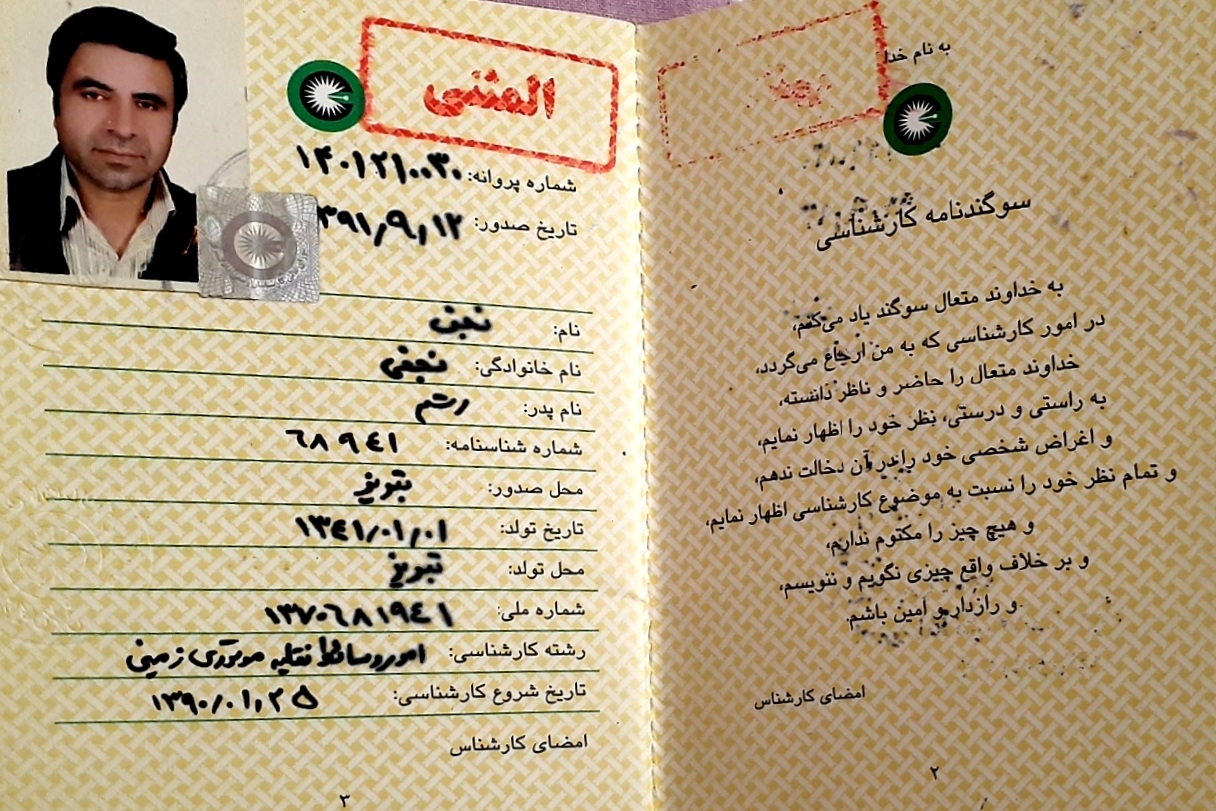 به نام خدا
سوگندنامه کارشناسی
به خداوند متعال سوگند یاد می‌کنم،
در امور کارشناسی که به من ارجاع می‌گردد،
خداوند متعال را حاضر و ناظر دانسته،
به راستی و درستی، نظر خود را اظهار نمایم،
و اغراض شخصی خود را در آن دخالت ندهم،
و تمام نظر خود را نسبت به موضوع کارشناسی اظهار نمایم،
و هیچ چیز را مکتوم ندارم،
و بر خلاف واقع چیزی نگویم و ننویسم،
و رازدار و امین باشم.
امضای کارشناس
۲
المثنی
شماره پروانه: ۱۴۰۱۲۱۰۰۳۰
تاریخ صدور: ۳۹۱/۹/۱۲
نام: نجف
نام خانوادگی: نجفی
نام پدر: رستم
شماره شناسنامه: ۶۸۹۴۱
محل صدور: تبریز
تاریخ تولد: ۱۳۴۱/۰۱/۰۱
محل تولد: تبریز
شماره ملی: ۱۳۷۰۶۸۱۹۴۱
رشته کارشناسی: امور وسائط نقلیه موتوری زمینی
تاریخ شروع کارشناسی: ۱۳۹۰/۰۱/۲۵
امضای کارشناس
۳